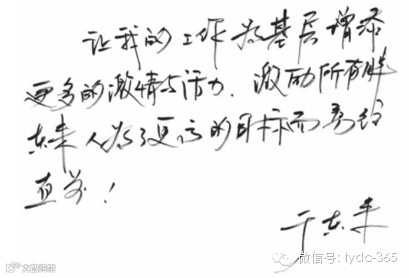 让我的工作为基层增添
更多的激情与活力，激励所有胖
东来人为了更高的目标而勇往
直前！
于东来
大数跨境
微信号: iydc-365